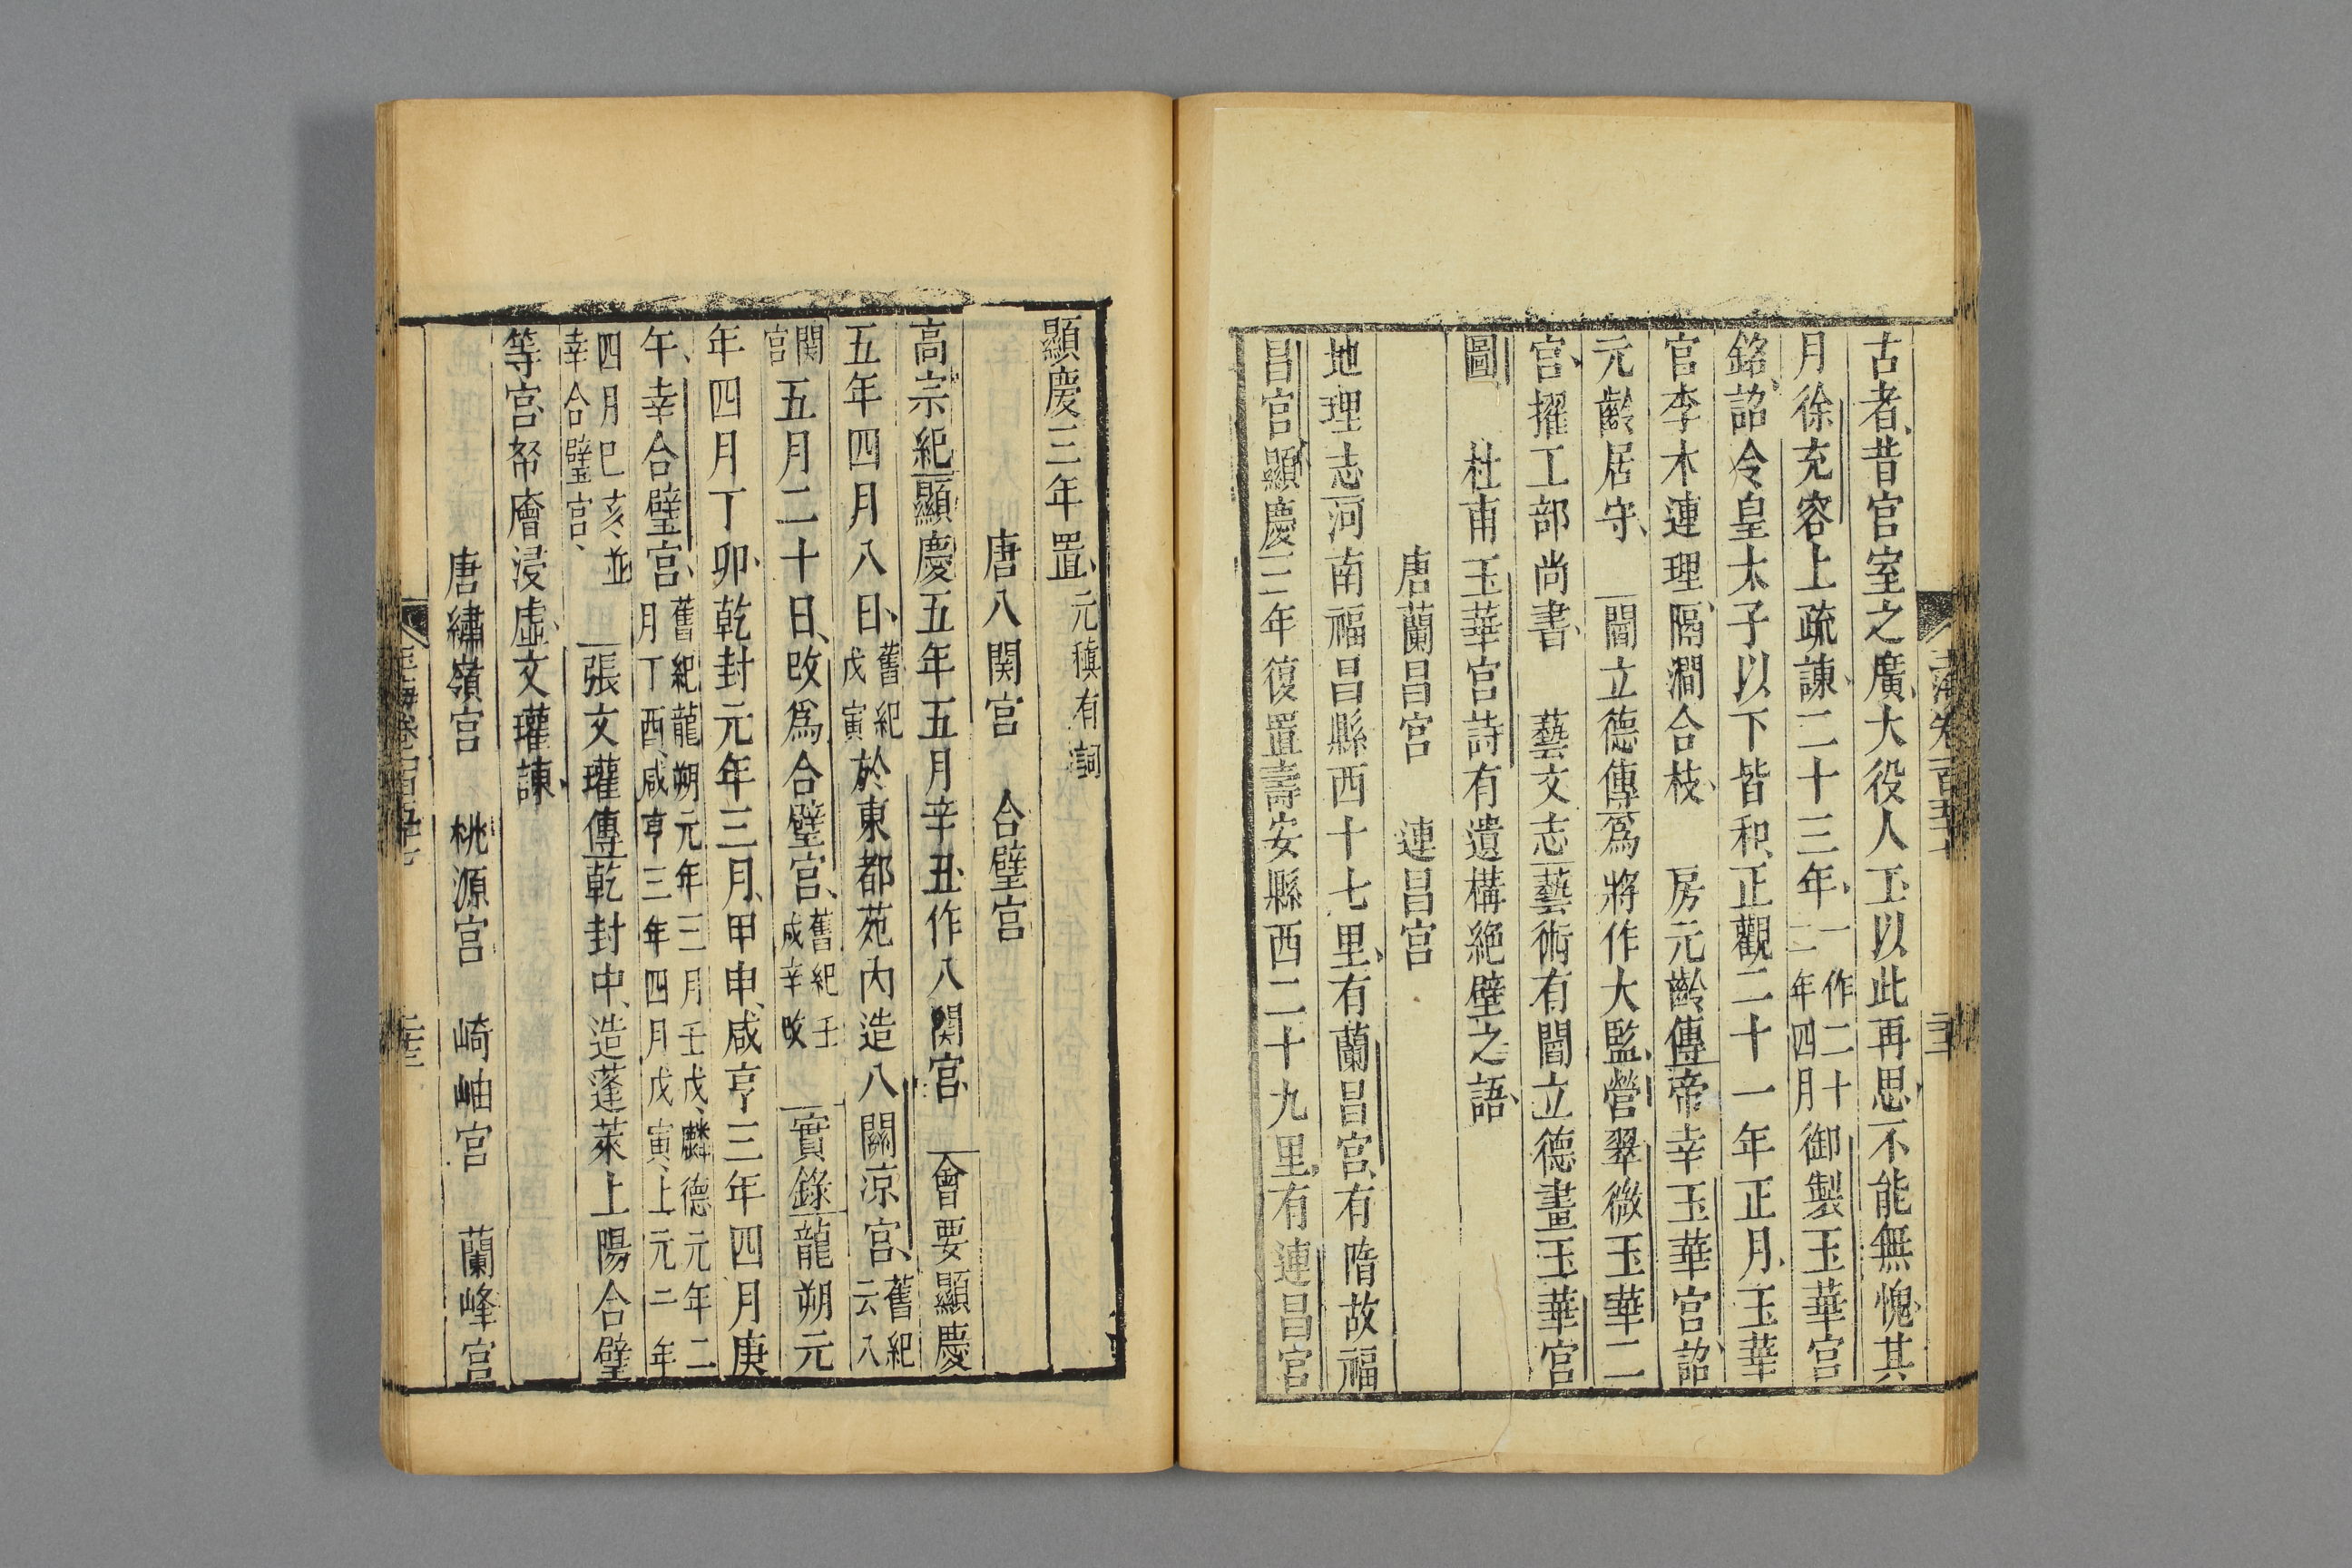 古者昔宮室之廣大役人工以此再思不能無愧其
月徐充容上疏諫二十三年一作二十二年四月御製玉華宮
銘詔令皇太子以下皆和正觀二十一年正月玉華
官李木連理隔澗合枝 房元齡傳帝幸玉華宮詔
元齡居守 閻立德傳爲將作大監營翠微玉華二
宮擢工部尚書 藝文志藝術有閻立德畫玉華宮
圖 杜甫玉華宮詩有遺構絕壁之語
唐蘭昌宮 連昌宮
地理志河南福昌縣西十七里有蘭昌宮有隋故福
昌宮顯慶三年復置壽安縣西二十九里有連昌宮
顯慶三年置元稹有詞
唐八関宮 合璧宮
高宗紀顯慶五年五月辛丑作八関宮 會要顯慶
五年四月八日舊紀戊寅於東都苑內造八關涼宮舊紀云八
関宮五月二十日改爲合璧宮舊紀壬戌辛改 實錄龍朔元
年四月丁卯乾封元年三月甲申咸亨三年四月庚
午幸合璧宮舊紀龍朔元年三月壬戌麟德元年二月丁酉咸亨三年四月戊寅上元二年
四月巳亥並幸合璧宮 張文瓘傳乾封中造蓬萊上陽合璧
等宮帑廥浸虛文瓘諫
唐繡嶺宮 桃源宮 崎岫宮 蘭峰宮